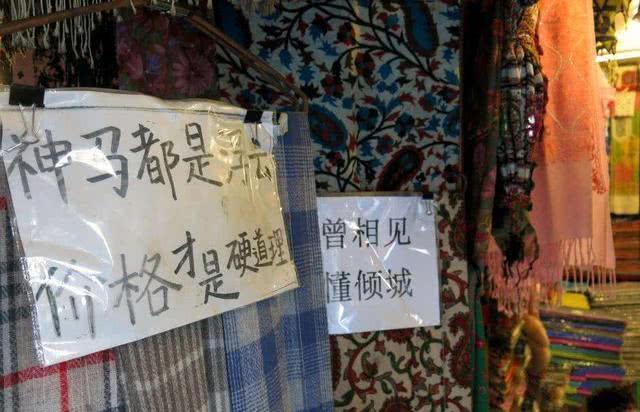 神马都是浮云
价格才是硬道理
曾相见
懂倾城